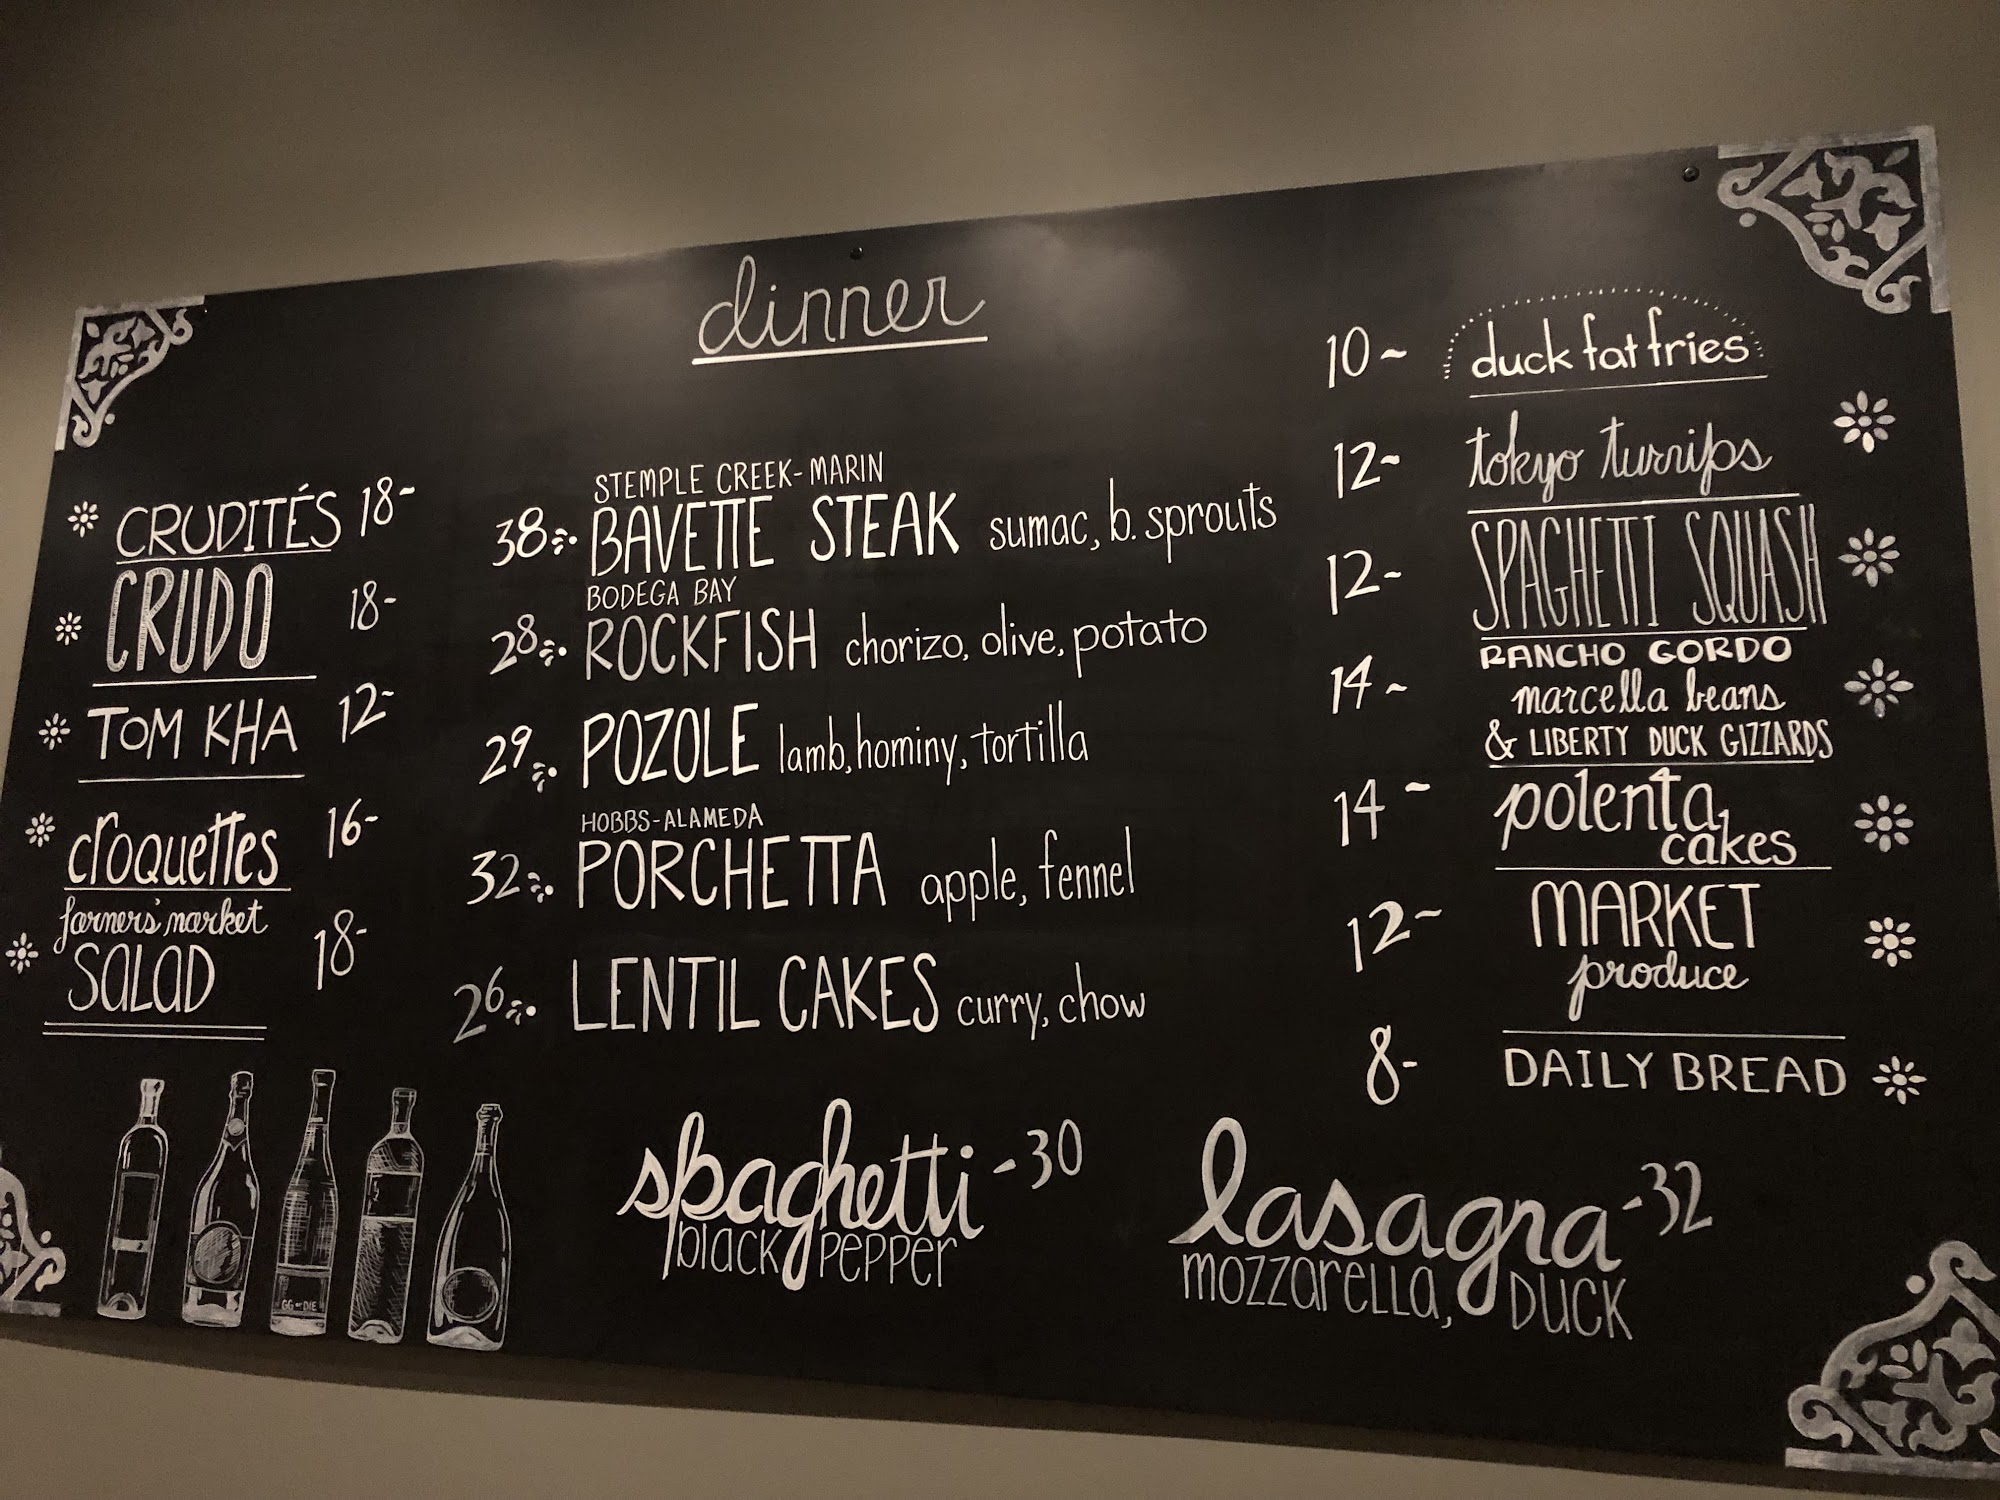 dinner
CRUDITÉS 18-
CRUDO 18-
TOM KHA 12-
croquettes 16-
farmers' market
SALAD 18-
STEMPLE CREEK-MARIN
38 BAVETTE STEAK sumac, b. sprouts
BODEGA BAY
28 ROCKFISH chorizo, olive, potato
29 POZOLE lamb, hominy, tortilla
HOBBS-ALAMEDA
32 PORCHETTA apple, fennel
26 LENTIL CAKES curry, chow
10~ duck fat fries
12~ tokyo turnips
12- SPAGHETTI SQUASH
RANCHO GORDO
14~ marcella beans
& LIBERTY DUCK GIZZARDS
14~ polenta
cakes
12~ MARKET
produce
8- DAILY BREAD
spaghetti -30
black pepper
lasagna -32
mozzarella, DUCK
GG or DIE